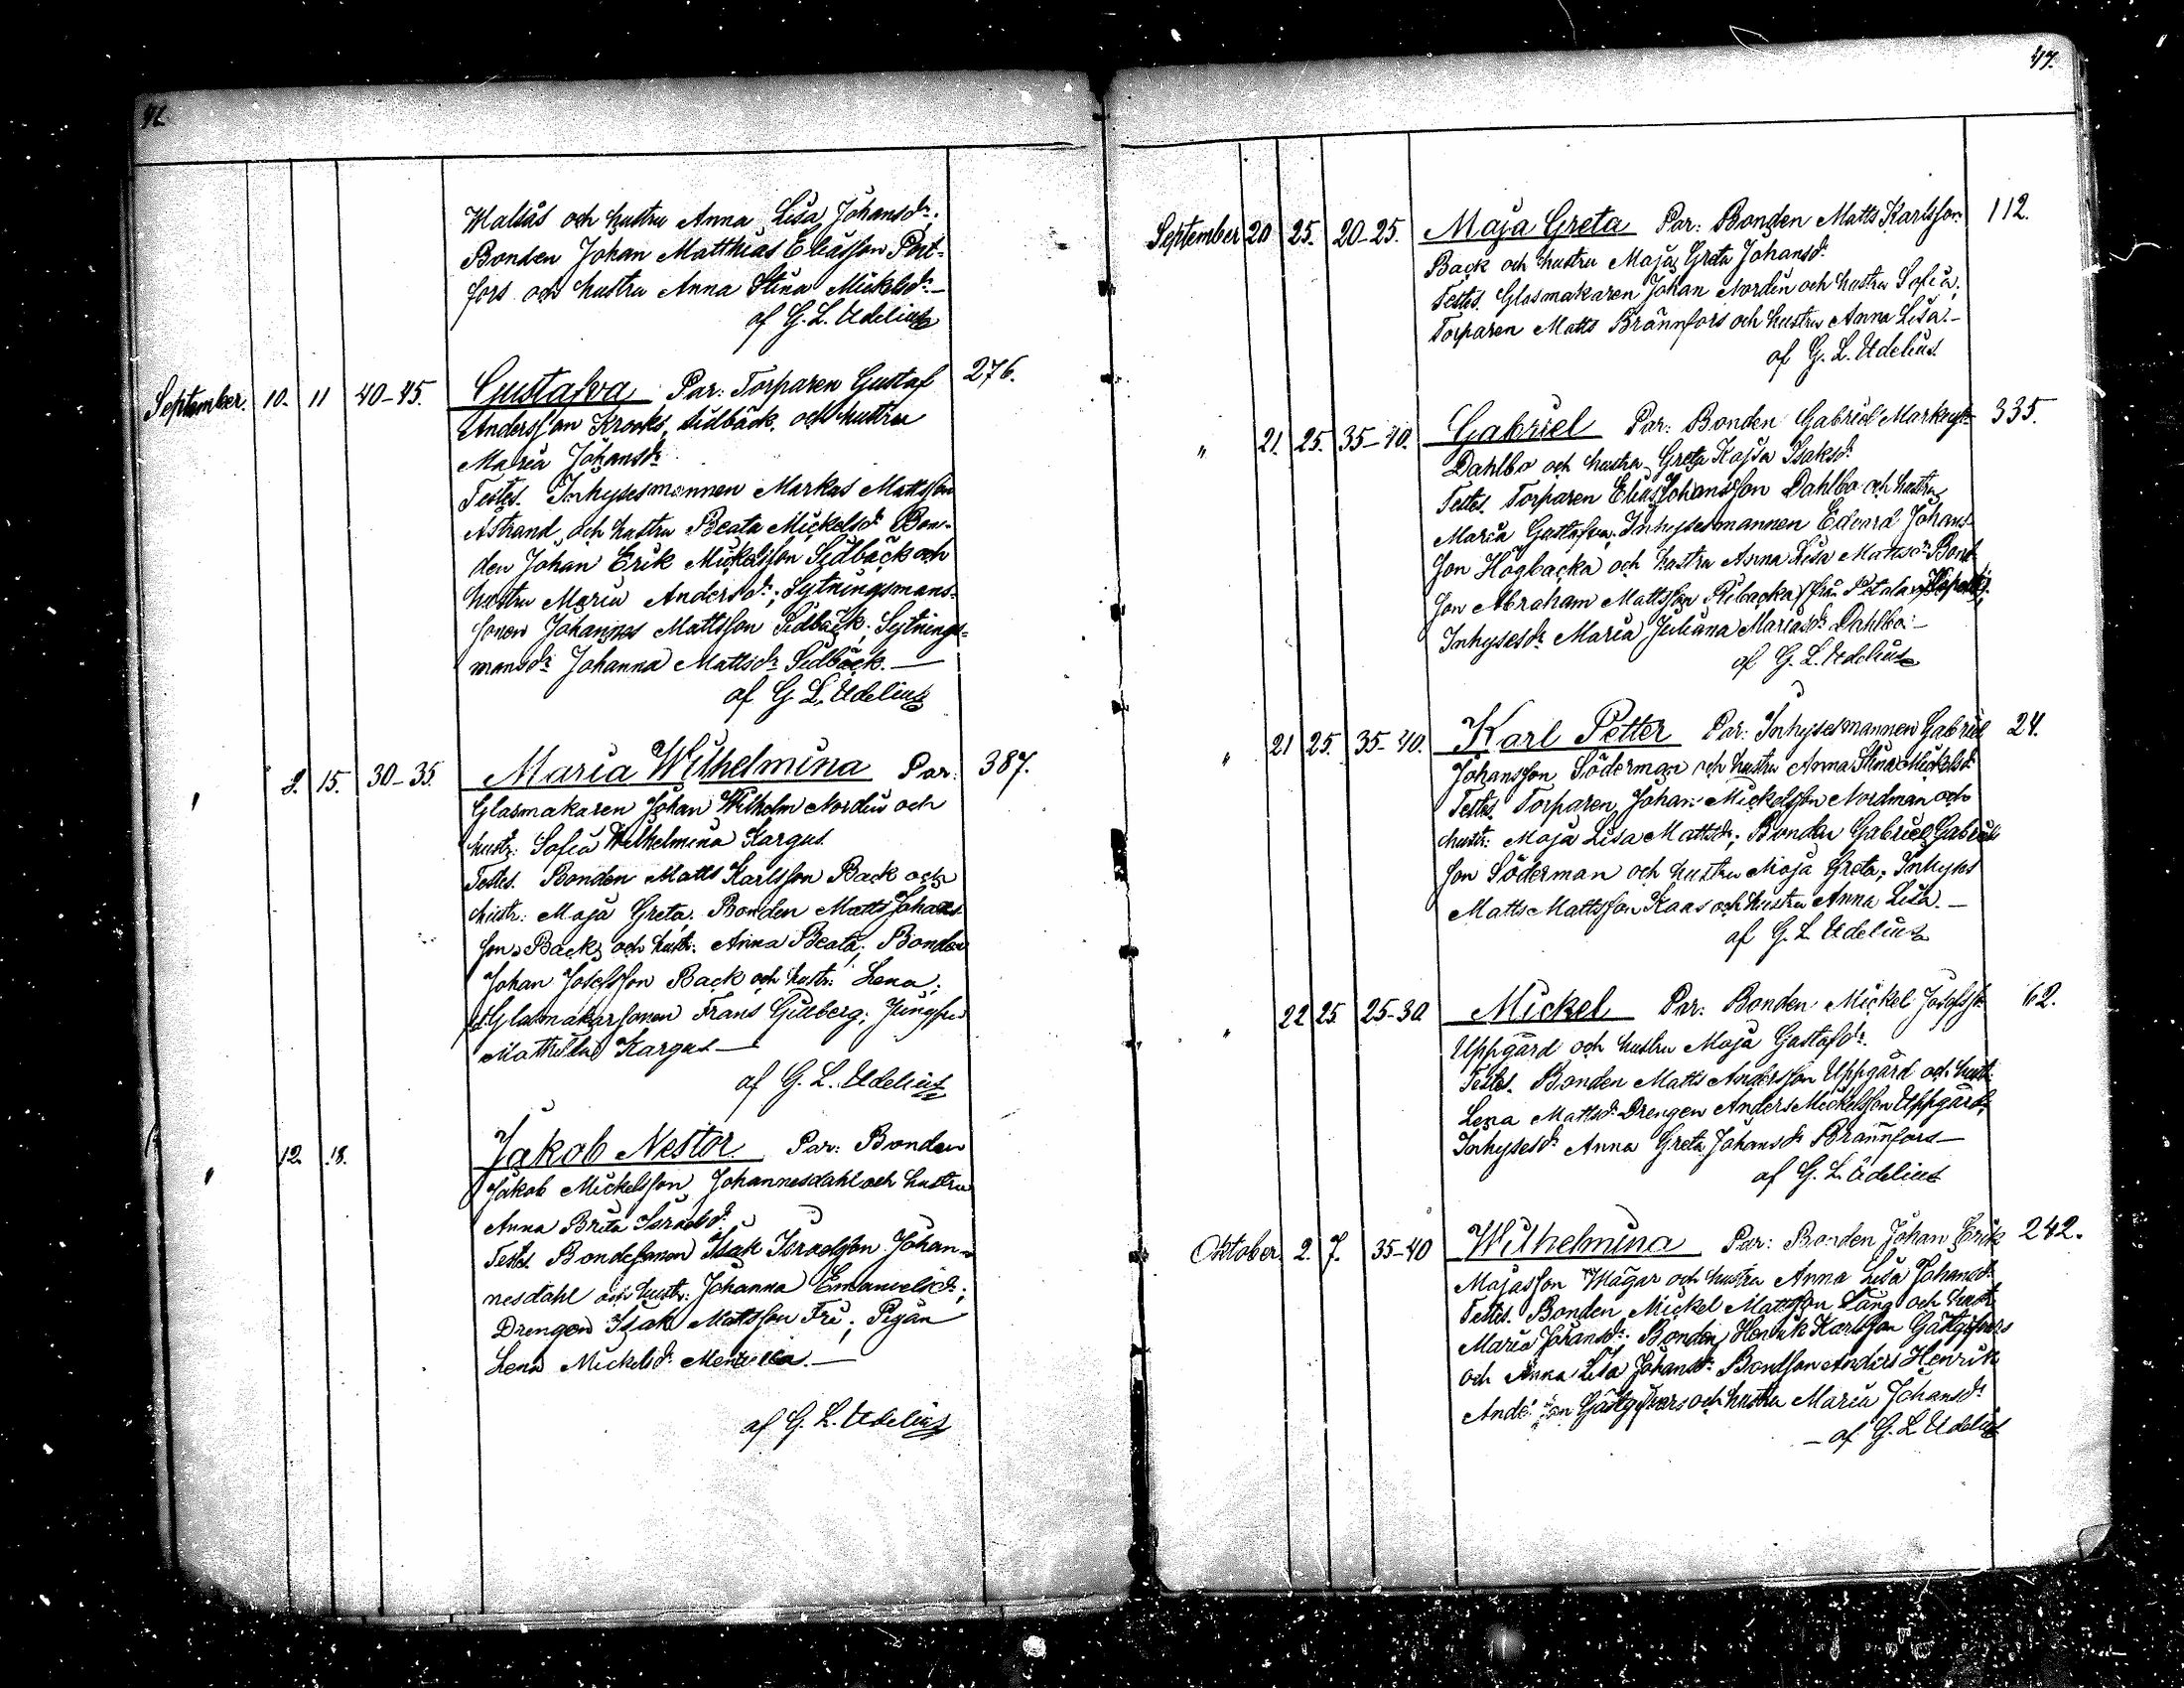 46.
Malsås och hustru Anna Lisa Johansdr;
Bonden Johan Matthias Eliasson Port-
fors och hustru Anna Stina Mickelsdr.—
af G. L. Udelius
September. 10. 11 40-45. Gustafva Par: Torparen Gustaf 276.
Andersson Krooks, Sidbäck och hustru
Maria Johansdr
Testes. Inhysesmannen Markus Mattsson
Åstrand och hustru Beata Mickelsdr Bon-
den Johan Erik Mickelsson Sidbäck och
hustru Maria Andersdr; Sytningsmans-
sonen Johannes Mattsson Sidbäck; Sytnings-
mansdr Johanna Mattsdr Sidbäck.—
af G. L. Udelius
" 15. 30-35. Maria Wilhelmina Par: 387.
Glasmakaren Johan Wilhelm Nordin och
hustr: Sofia Wilhelmina Kargus.
Testes. Bonden Matts Karlsson Back och
hustr: Maja Greta. Bonden Matts Johans-
son Back och hustr: Anna Beata; Bonden
Johan Josefsson Back och hustr: Lena;
Glasmakarsonen Frans Gilberg; Jungfru
Mathilda Kargus—
af G. L. Udelius
" 12. 18. Jakob Nestor Par: Bonden
Jakob Mickelsson Johannesdahl och hustru
Anna Brita Israelsdr
Testes. Bondesonen Isak Israelsson Johan-
nesdahl och hustr: Johanna Emanuelsdr;
Drengen Isak Mattsson Fri; Pigan
Lena Mickelsdr.—
af G. L. Udelius
47.
September 20 25. 20-25. Maja Greta Par: Bonden Matts Karlsson 112.
Back och hustru Maja Greta Johansdr
Testes. Glasmakaren Johan Nordin och hustru Sofia;
Torparen Matts Brännfors och hustru Anna Lisa.—
af G. L. Udelius.
" 21. 25. 35-40. Gabriel Par: Bonden Gabriel 335.
Dahlbo och hustru Greta Kajsa Isaksdr
Testes. Torparen Elias Johansson Dahlbo och hustru
Maria Gustafva; Inhysesmannen Edvard Johans-
son Högbacka och hustru Anna Lisa Mattsdr Bond-
son Abraham Mattsson Ribacka från
Inhysesdr Maria Juliana Mariasdr Dahlbo.—
af G. L. Udelius
" 21 25. 35-40. Karl Petter Par: Inhysesmannen Gabriel 24.
Johansson Söderman och hustru Anna Stina Mickelsdr
Testes. Torparen Johan Mickelsson Nordman och
hustr: Maja Lisa Mattsdr; Bonden Gabriel Gabriels
son Söderman och hustru Maja Greta; Inhyses
Matts Mattsson Kaas och hustru Anna Lisa.—
af G. L. Udelius
" 22 25 25-30. Mickel Par: Bonden Mickel Josefss. 62.
Uppgård och hustru Maja Gustafsdr.
Testes. Bonden Matts Andersson Uppgård och hustr:
Lena Mattsdr Drengen Anders Mickelsson Uppgård;
Inhysesdr Anna Greta Johansdr Brännfors—
af G. L. Udelius
Oktober. 2. 7. 35-40 Wilhelmina Par: Bonden Johan Erik 242.
Majasson Mågar och hustru Anna Lisa Johansdr
Testes. Bonden Mickel Mattsson Lång och hustr
Maria Johansdr; Bonden Henrik Karlsson Gästgifvars
och Anna Lisa Johansdr Bondson Anders Henrik
Gästgifvars och hustru Maria Johansdr
— af G. L. Udelius